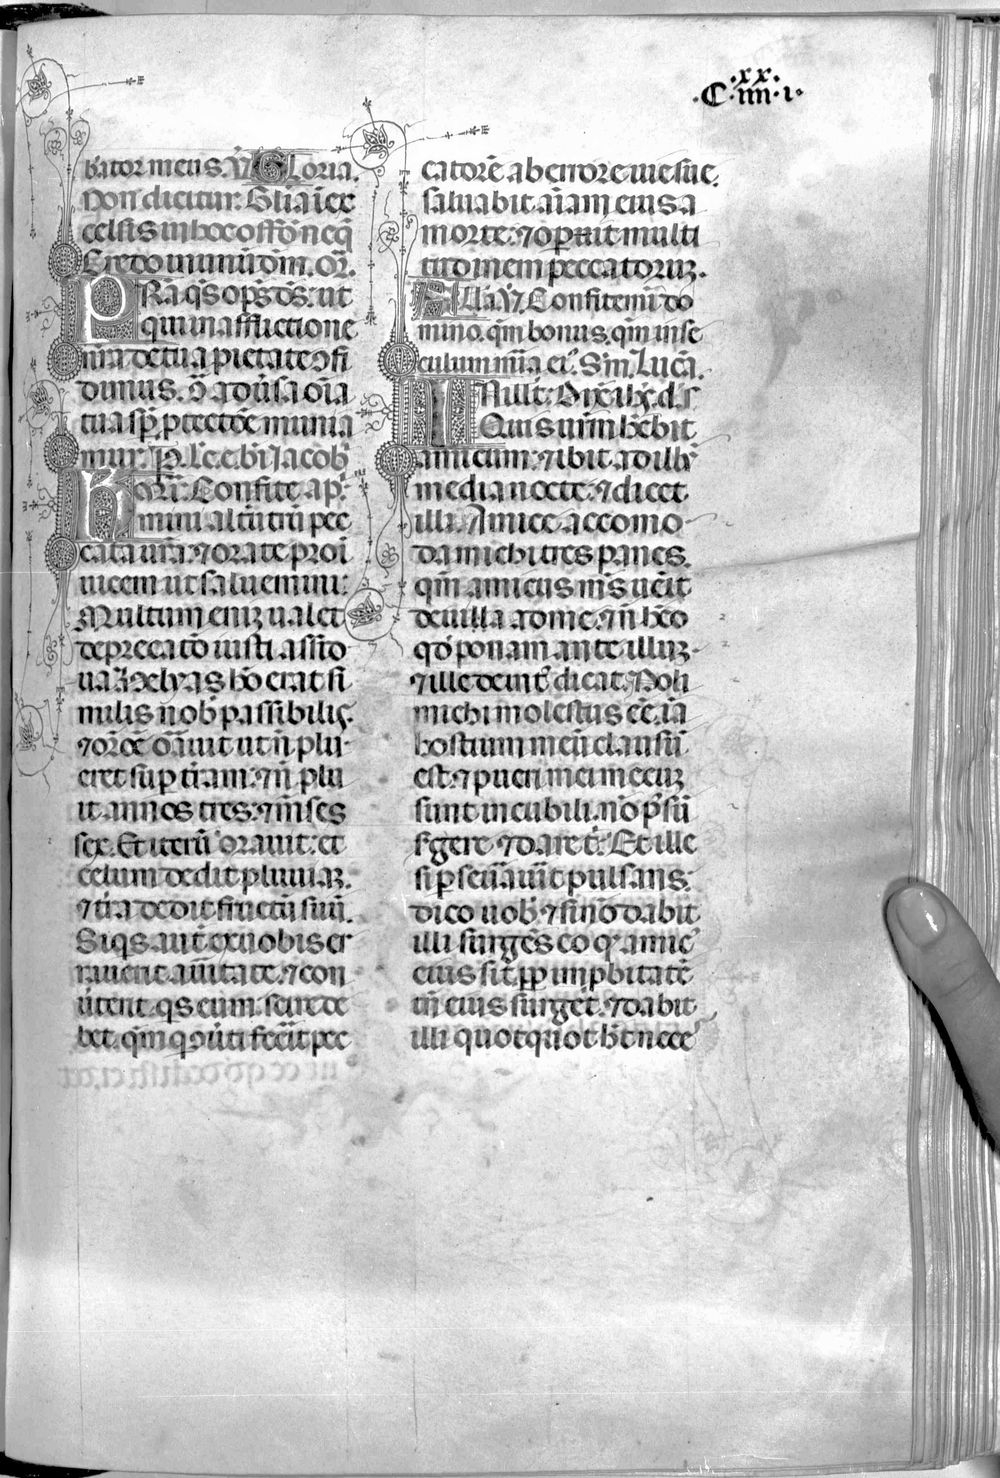 .xx.
.C.iiii.i.
bator meus. ℣ Gloria.
Non dicitur. Glīa ī ex
celsis in hoc offō neq̄
Credo in unū dm̄. or̄.
PRa qs̄ op̄s ds̄. ut
qui in afflictione
nr̄a de tua pietate ꝯfi
dimus. ꝯ̄ adūsa oīa
tua sp̄ ꝓtectōe munia
mur. ꝑ. lc̄. e. bī Jacob
Kōri: Confite ap̄.
mini altūtrū pec
cata vr̄a. ⁊ orate pro ī
uicem ut saluemini:
Multum eniꝫ ualet
deprecatō iusti assīdo
ua. helyas hō erat si
milis nob̄ passibilis.
⁊ orōe orauit ut n̄ plu-
eret suꝑ tr̄am. ⁊ n̄ plu
it annos tres. ⁊ mēses
sex. Et iterū orauit. et
celum dedit pluuiaꝫ.
⁊ tr̄a dedit fructū suū.
Si qs̄ aut̄ ex uobis er
rauerit a uītate. ⁊ con
ūterit qs̄ eum. scire de
bet. qm̄ q ꝯūti fecīt pec
catorē ab errore uie sue.
saluabit aīam eius a
morte. ⁊ oꝑit multi
tudinem peccatoruꝫ.
Alla ℣ Confitemī do
mino. qm̄ bonus. qm̄ in se
culum mīa ei. Sm̄. Lucā.
IN illo t. Dix̄ ihs̄. d. s
Quis urm̄ hēbit
amicum. ⁊ ibit ad illū
media nocte. ⁊ dicet
illi. Amice accomo-
da michi tres panes.
qm̄ amicus ms̄ uēit
de uilla ad me. ⁊ n̄ hēo
qd̄ ponam ante illuꝫ.
⁊ ille deint̄ dicat. Noli
michi molestus eē. iā
hostium meū clausū
est. ⁊ pueri mei mecuꝫ
sunt in cubili. nō p̄sū
s̄gere ⁊ dare t̄. Et ille
si ꝑseūauīt pulsans.
dico uob̄. ⁊ si nō dabit
illi surgēs eo ꝙ amic̄
eius sit. ꝓp̄ inꝓbitatē
tn̄ eius surget. ⁊ dabit
illi quotquot ht̄ nece